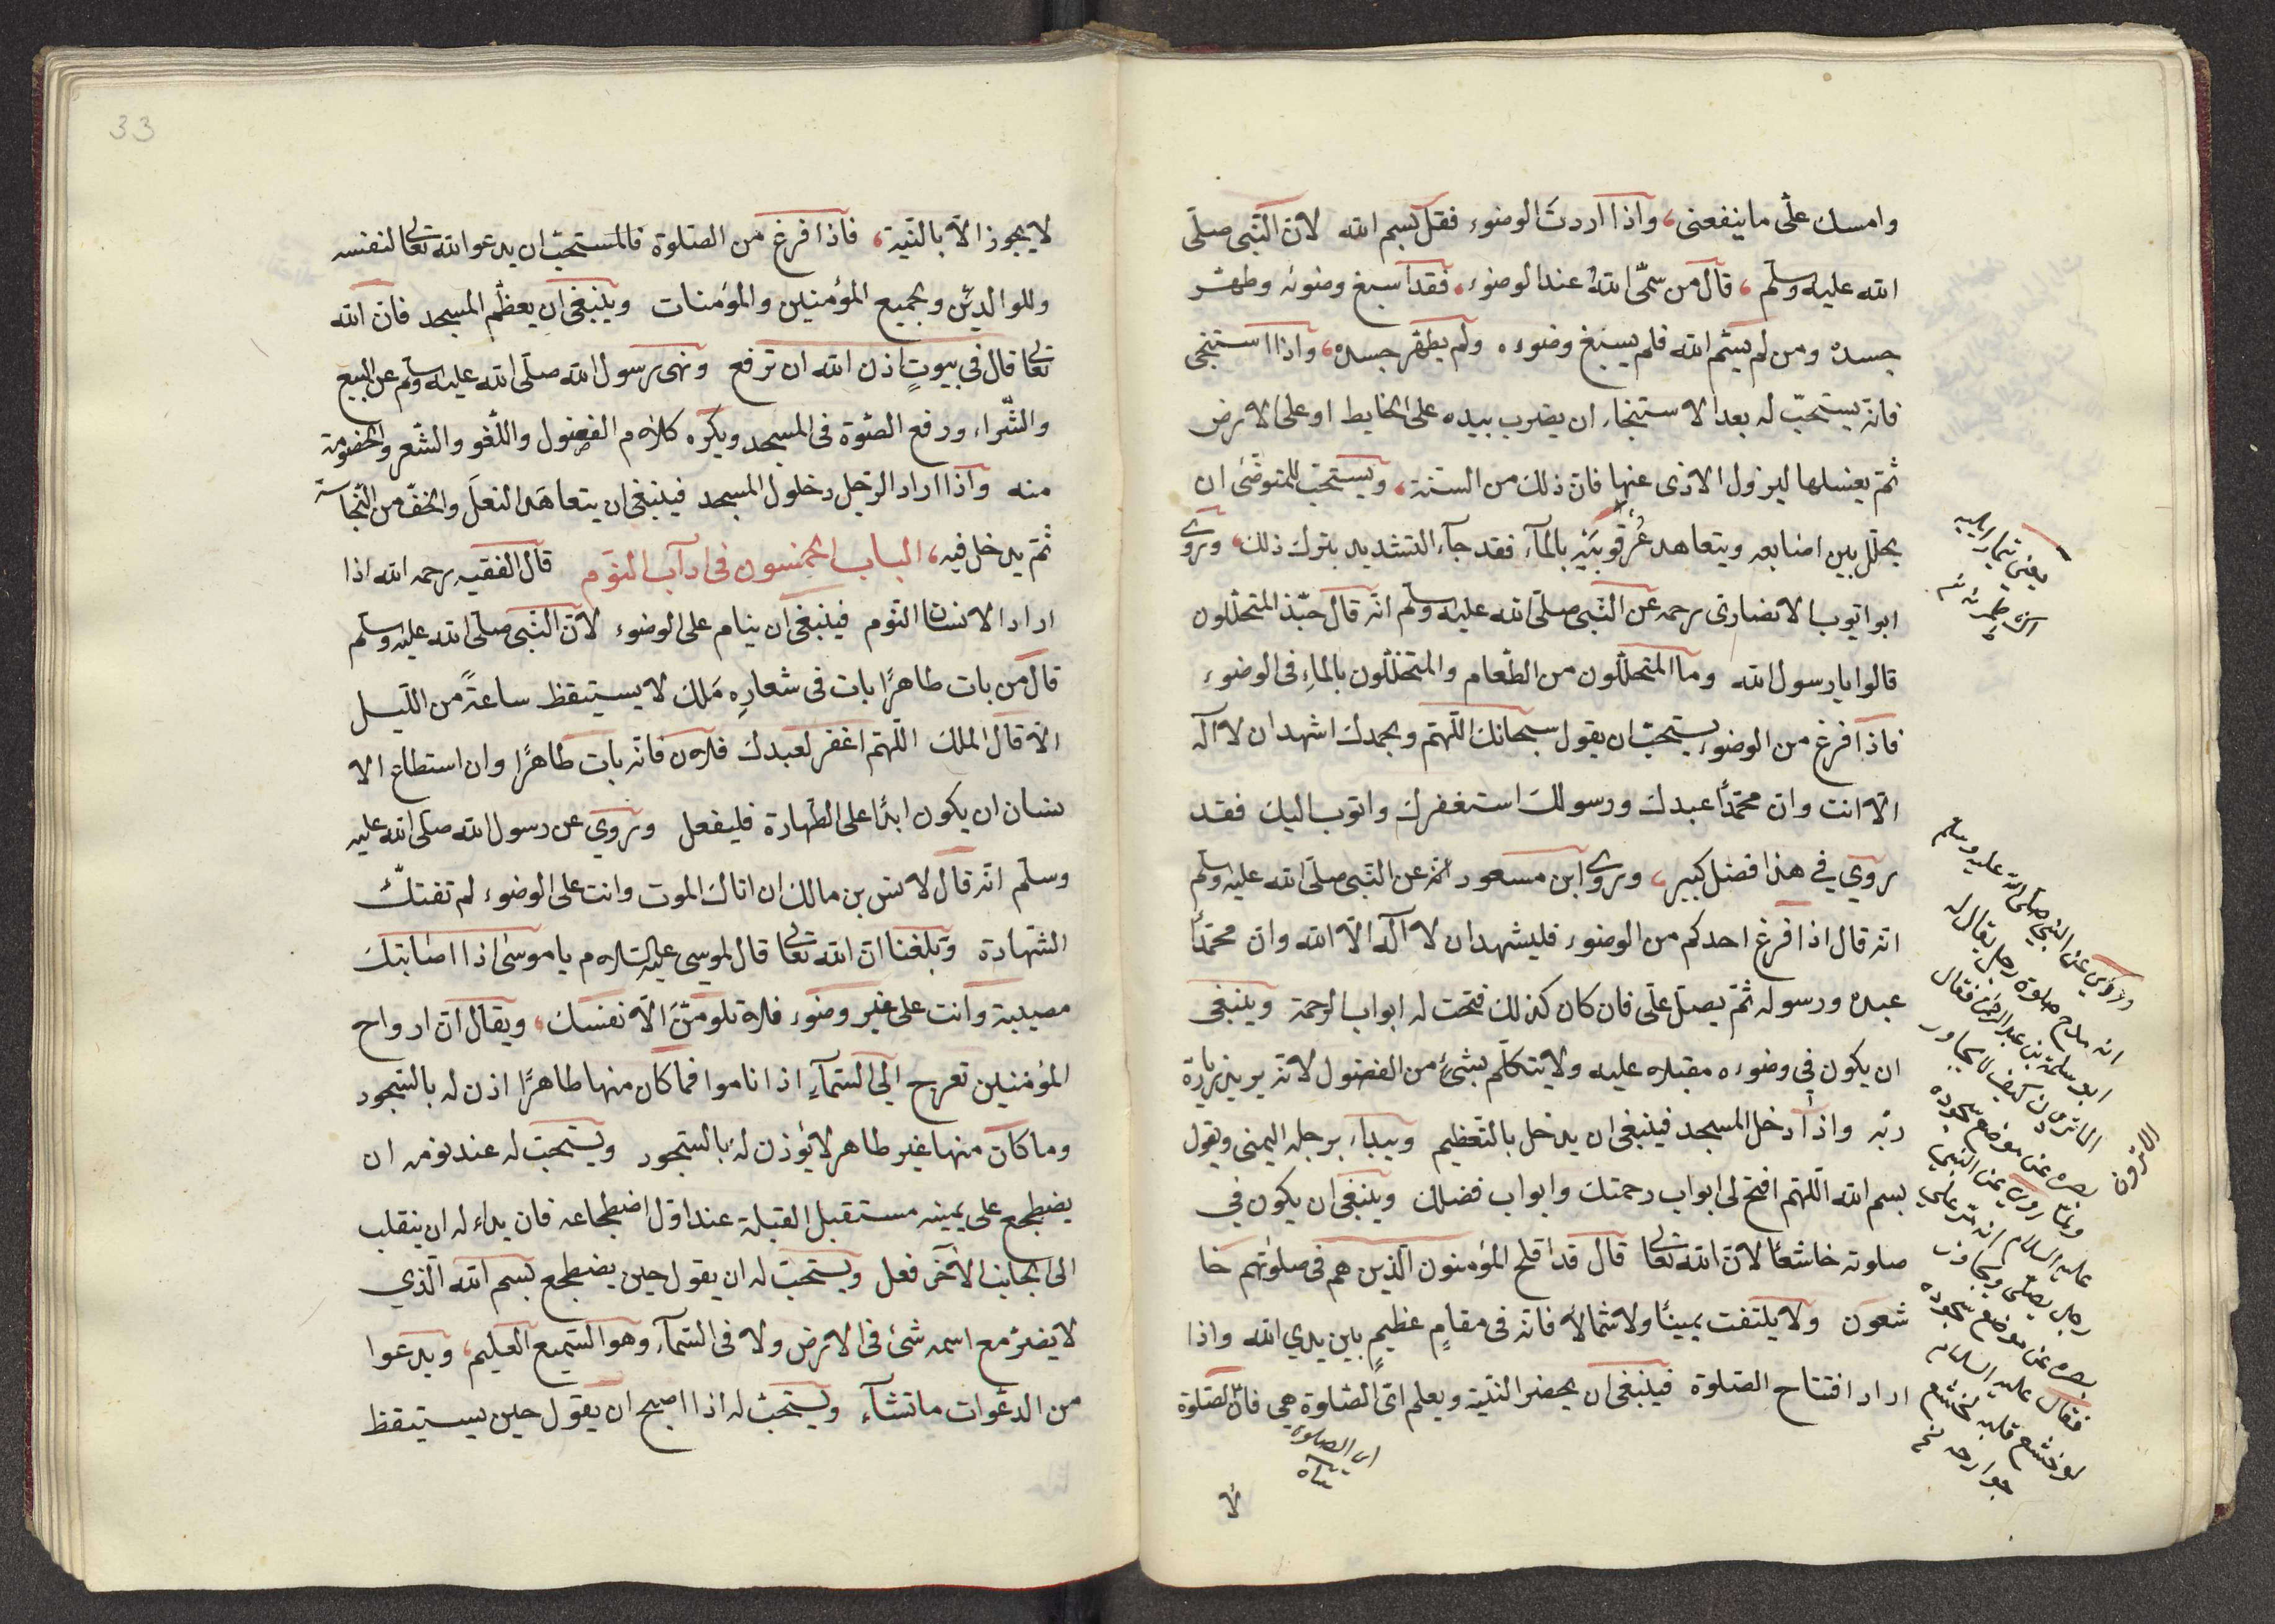 وامسك علّى ما ينفعنى، واذا اردتَ الوضوء فقل بسم الله لانّ النّبى صلّى
الله عليه وسلّم، قال من سمّى اللهَ عند الوضوء، فقد اسبغ وضوئه وطهّر
جسده ومن لم يسّم الله فلم يسبغ وضوءه ولم يطهّر جسده، واذا استنجى
فانّه يستحبّ له بعد الاستنجاء ان يضرب بيده على الحايط او على الارض
ثمّ يغسلها ليزول الاذى عنها فانّ ذلك من السنّة، ويستحبّ للمتوضّئ ان
يخلّل بين اصابعه ويتعاهد عُرقوبَيْه بالمآء فقد جآء التشديد بترك ذلك، وروى
ابو ايّوب الانصارى رحمه عن النّبى صلّى الله عليه وسلّم انّه قال حبّذ المتخلّلون
قالوا يا رسول الله وما المتخلّلون من الطّعام والمتخلّلون بالماءِ فى الوضوء
فاذا فرغ من الوضوء يستحبّ ان يقول سبحانك اللّهمّ وبحمدك اشهد ان لا آله
الاّ انت وانّ محمّدًا عبدك ورسولك استغفرك واتوب اليك فقد
روي في هذا فضل كبير، وروى ابن مسعود انّه عن النّبى صلّى الله عليه وسلّم
انّه قال اذا فرغ احدكم من الوضوء فليشهد ان لا آله الاّ الله وانّ محمّدًا
عبده ورسوله ثمّ يصلّ علّى فان كان كذلك فتحت له ابواب الرحمة وينبغى
ان يكون في وضوءه مقبلا عليه ولا يتكلّم بشئ من الفضول لانّه يريد زيارة
ربّه واذا دخل المسجد فينبغى ان يدخل بالتّعظيم ويبداء برجله اليمنى ويقول
بسم الله اللّهمّ افتح لى ابواب رحمتك وابواب فضلك وينبغى ان يكون في
صلوته خاشعًا لانّ الله تعالى قال قد افلح المؤمنون الّذين هم فى صلوتهم خا
شعون ولا يلتفت يمينًا ولا شمالا فانّه فى مقامٍ عظيمٍ بين يدي الله واذا
اراد افتتاح الصّلوة فينبغى ان يحضر النّيّة ويعلم اىّ الصّلوة هى فانّ الصّلوة
لا
وروي عن النبي صلّى الله عليه وسلم
ابو سلمة بن عبد الرحمن فقال
بصره عن موضع سجوده
رجل يصلّى
بصره عن موضع سجوده
فقال عليه السلام
لو خشع قلبه لخشع
جوارحه
33
لا يجوز الاّ بالنّيّة، فاذا فرغ من الصّلوة فالمستحبّ ان يدعو الله تعالى لنفسه
وللوالديْن ولجميع المؤمنين والمؤمنات وينبغى ان يعظّم المسجد فانّ الله
تعالى قال فى بيوتٍ اذن الله ان ترفع ونهى رسول الله صلّى الله عليه وسلّم عن البيع
والشّراء ورفع الصّوة فى المسجد ويكره كلام الفضول واللّغو والشّعر والخصومة
منه واذا اراد الرّجل دخول المسجد فينبغى ان يتعاهَد النعلَ والخفّ من النّجاسة
ثمّ يدخل فيه، الباب الخمسون فى ادآب النّوم قال الفقيه رحمه الله اذا
اراد الانسان النّوم فينبغى ان ينام على الوضوء لانّ النّبى صلّى الله عليه وسلّم
قال من بات طاهرًا بات فى شعارِه مَلك لا يستيقظ ساعةً من اللّيل
الاّ قال الملك اللّهمّ اغفر لعبدك فلان فانّه بات طاهرًا وان استطاع الا
نسان ان يكون ابدًا على الطّهارة فليفعل وروي عن رسول الله صلّى الله عليه
وسلّم انّه قال لانس بن مالك ان اتاك الموت وانت على الوضوء لم تفتك
الشّهادة وبلغنا انّ الله تعالى قال لموسى عليه السّلام يا موسى اذا اصابتك
مصيبة وانت على غير وضوء فلا تلومنّ الاّ نفسك، ويقال انّ ارواح
المؤمنين تعرج الى السّمآءِ اذا ناموا فما كان منها طاهرًا اذن له بالسّجود
وما كان منها غير طاهر لا يؤذن لَه بالسّجود ويستحبّ له عند نومه ان
يضطجع على يمينه مستقبل القبلة عند اوّل اضطجاعه فان بداء له ان ينقلب
الى الجانب الآخر فعل ويستحبّ له ان يقول حين يضطجع بسم الله الّذي
لا يضرّ مع اسمه شئ فى الارض ولا فى السّمآء وهو السّميع العليم، ويدعوا
من الدعْوات ما تشآء ويستحبّ له اذا اصبح ان يقول حين يستيقظ